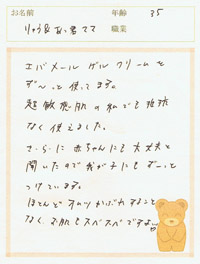 お名前
年齢 35
りゅう&あっ君ママ
職業
エバメール ゲル クリームを
ず〜っと使ってます。
超敏感肌の私でも抵抗
なく使えました。
さらに赤ちゃんにも大丈夫と
聞いたので我が子にもずーっと
つけています。
ほとんどオムツかぶれすること
なく、お肌もスベスベですよ